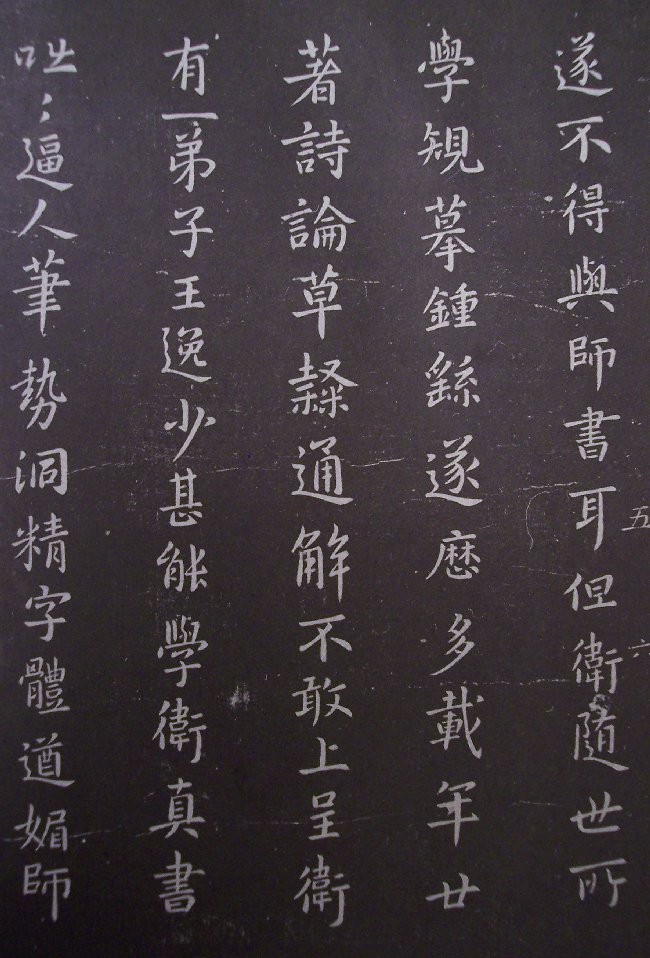 五
六
遂不得與師書耳但衛隨世所
學䂓摹鍾繇遂歷多載年廿
著詩論草隸通解不敢上呈衛
有一弟子王逸少甚能學衛真書
咄〻逼人筆勢洞精字體遒媚師